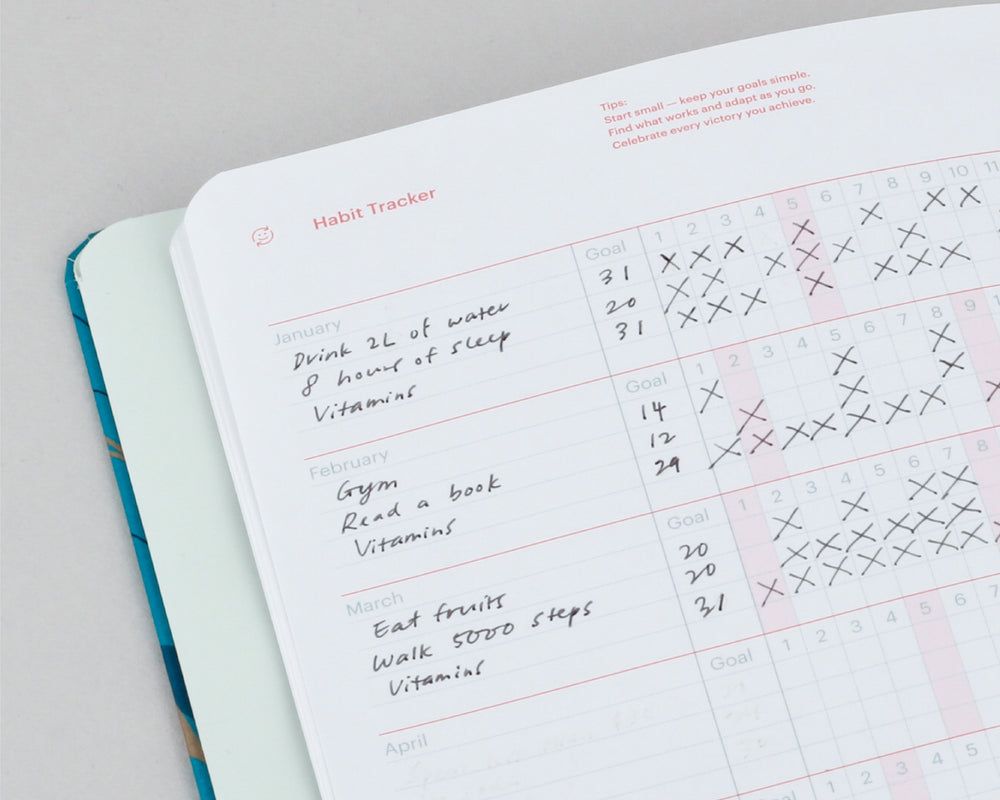 Tips:
Start small — keep your goals simple.
Find what works and adapt as you go.
Celebrate every victory you achieve.
Habit Tracker
Goal 1 2 3 4 5 6 7 8 9 10 11
January
Drink 2L of water 31 X X X X X X X
8 hours of sleep 20 X X X X X X
Vitamins 31 X X X X X X X
Goal 1 2 3 4 5 6 7 8 9
February
Gym 14 X X X
Read a book 12 X X X
Vitamins 29 X X X X X X X X
Goal 1 2 3 4 5 6 7 8
March
Eat fruits 20 X X X X
Walk 5000 steps 20 X X X X X X
Vitamins 31 X X X X X X X
Goal 1 2 3 4 5 6 7
April
Goal 1 2 3 4 5